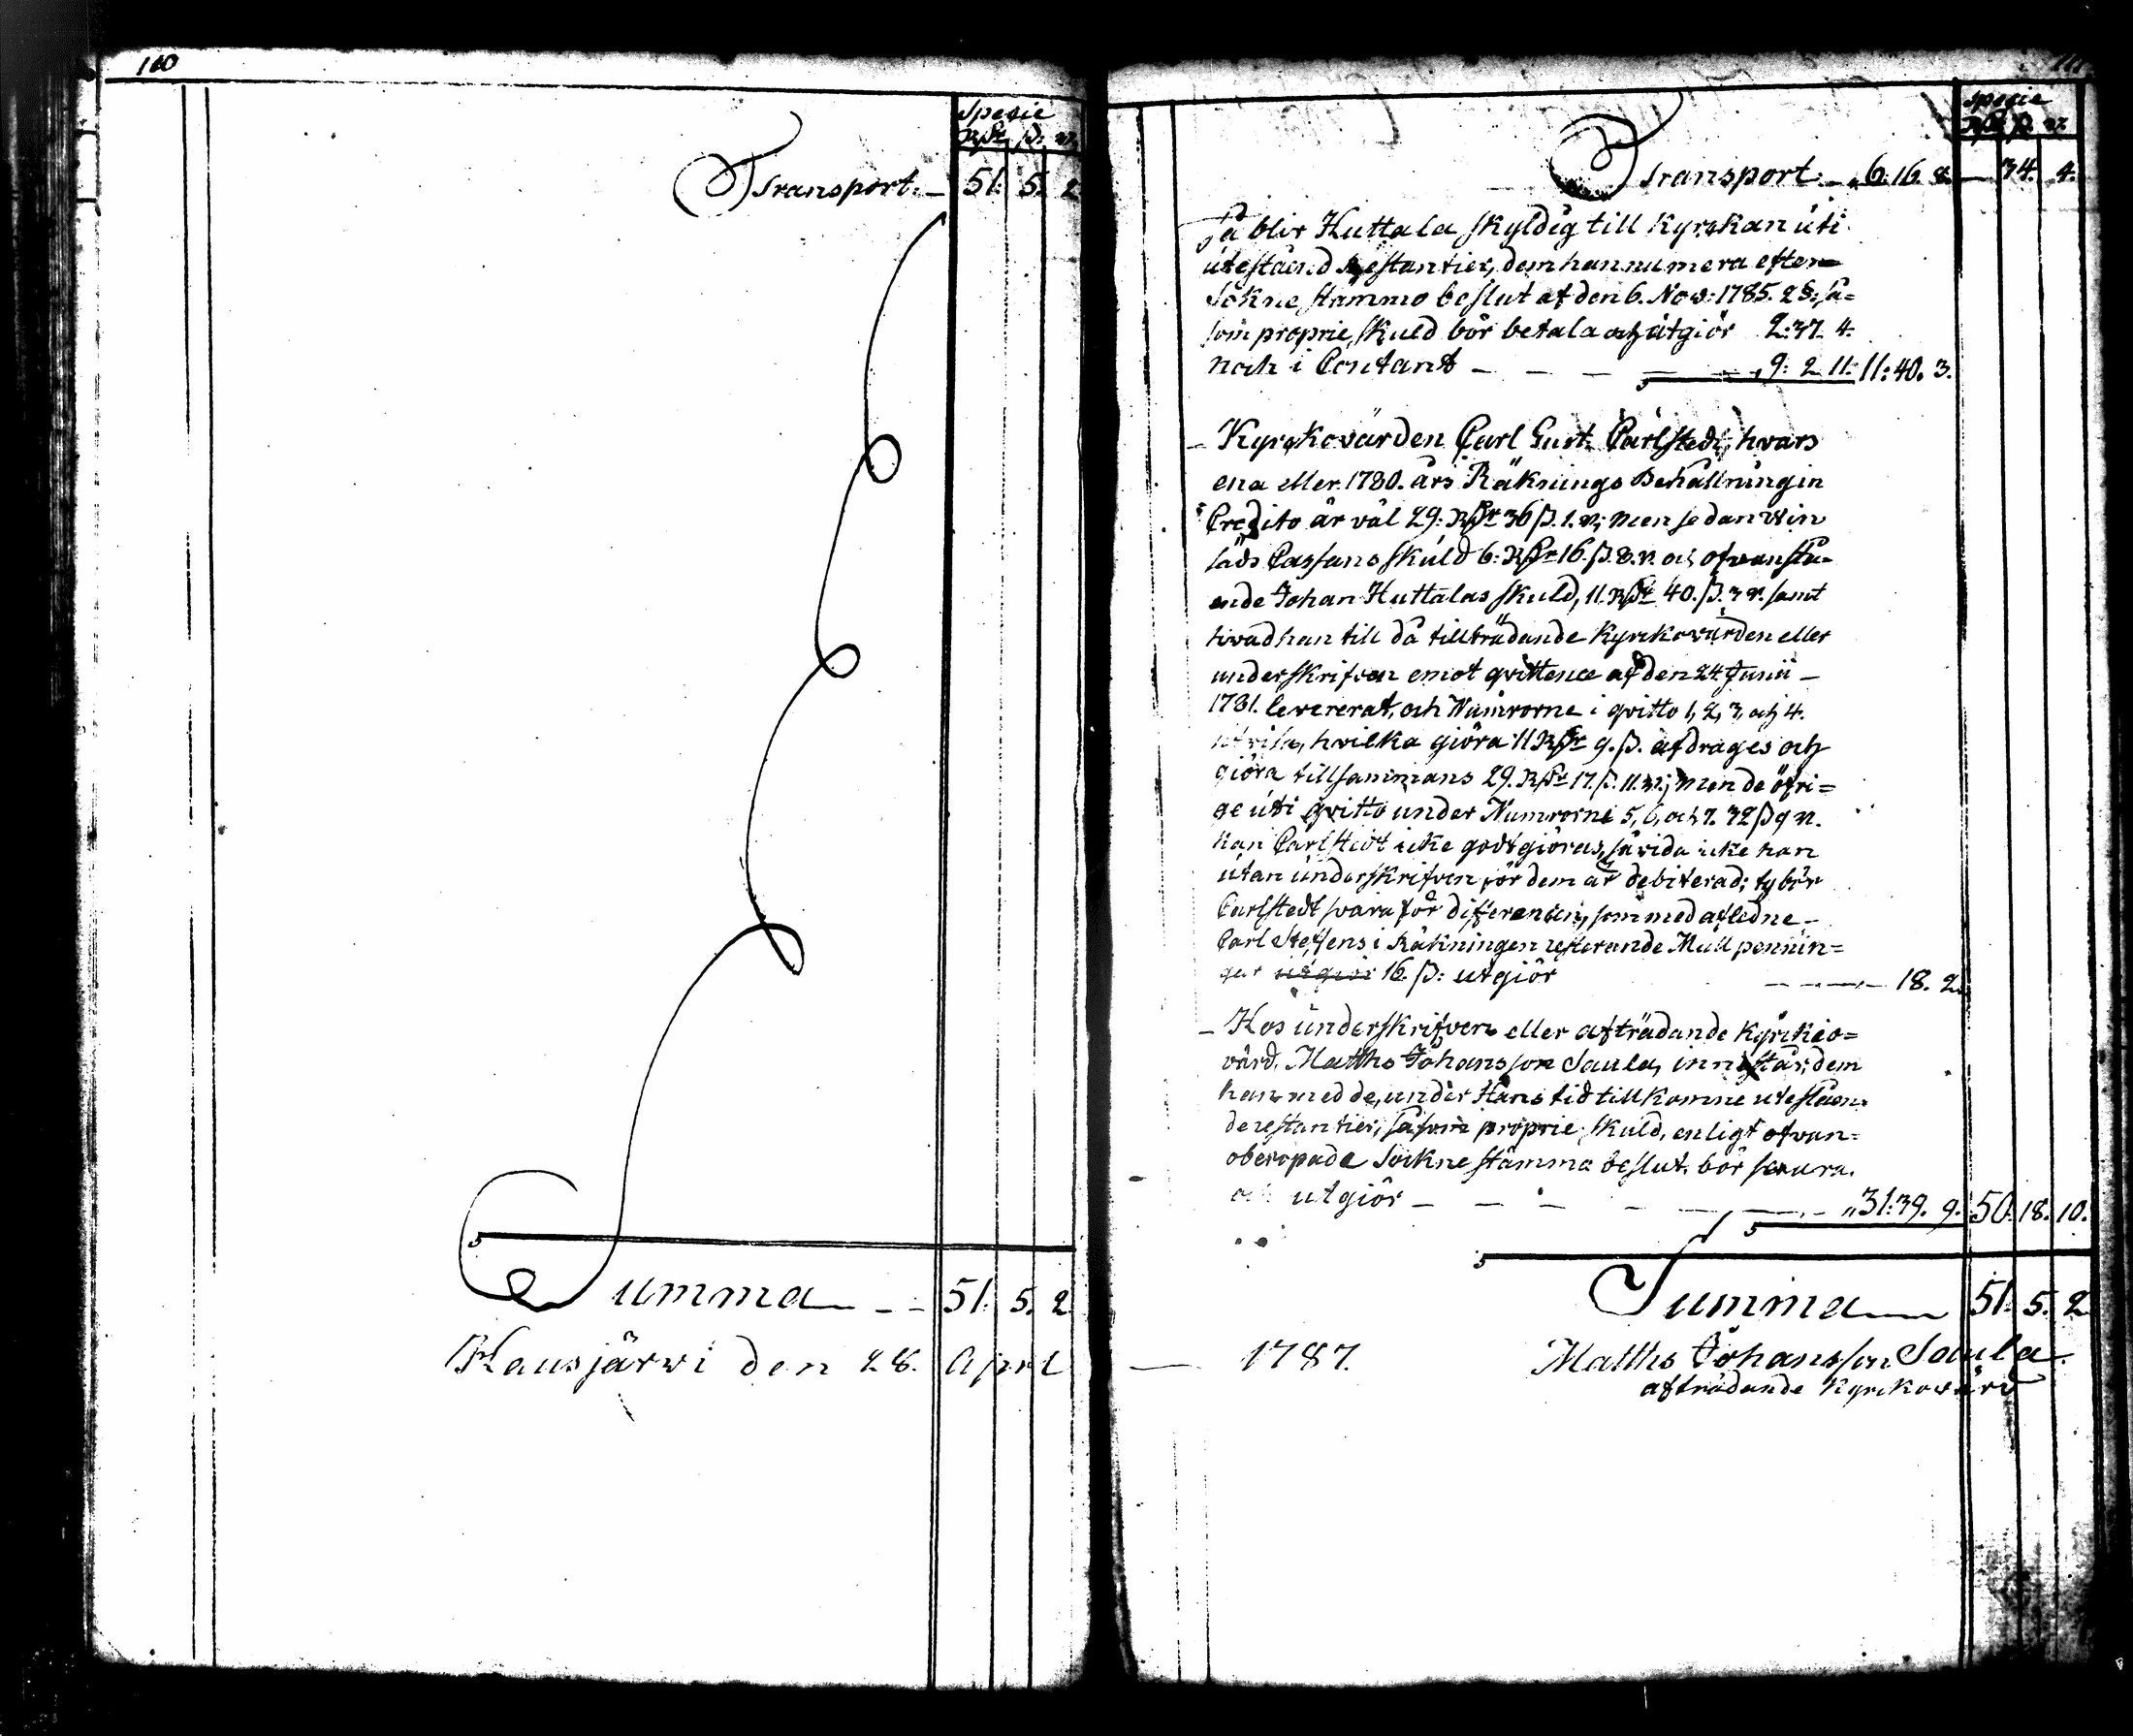 160
Specie
RDr ß: rr
Transport. – 51. 5. 2
Summa – – 51. 5. 2
Hausjärwi den 28. April
Specie
RDr ß rr
Transport. – „ 6. 16. 8. – 34. 4.
så blir Huttala skyldig till Kyrkan uti
uteståend Restantier, dem han numera efter
Sökne stämmo beslut af den 6. Nov: 1785. 2 §: så=
som proprie skuld bör betala och utgiör 2: 37. 4.
noch i Contant – – – – „ 9: 2 11: 11: 40. 3.
– Kyrckovärden Carl Gust. Carlstedt, hvars
ena eller 1780. års Räknings Behållning in
Credito är väl 29: RDr 36 ß. 1. rr; men sedan Win
säds Cassans skuld 6: RDr 16. ß. 8. rr. och ofvanstå=
ende Johan Huttalas skuld, 11. RDr 40. ß. 3 rr. samt
hvad han till då tillträdande Kyrckovärden eller
underskrifven emot qvittence af den 24 Junii –
1781. levererat, och Numrorne i qvitto 1, 2, 3, och 4.
utvisa, hvilka giöra 11 RDr 9. ß. afdrages och
giöra tillsammans 29. RDr 17. ß. 11. rr; men de öfri=
ge uti qvitto under Numrorne 5, 6, och 7. 32 ß 9 rr.
kan Carlstedt icke godtgiöras, såvida icke han
utan underskrifven för dem är debiterad; ty bör
Carlstedt svara för differencen, som med afledne –
Carl Steffens i Räkningen resterande Mull pennin=
gar utgiör 16. ß: utgiör – – – – 18. 2
– Hos underskrifven eller afträdande Kyrcko=
värd. Matths Johansson Saula, innestår, dem
han med de, under Hans tid tillkomne uteståen=
de restantier, såsom proprie skuld, enligt ofvan=
oberopade Sockne stämma beslut, bör svara.
och utgiör – – – – – – „ 31: 39. 9. 50. 18. 10.
Summa 51. 5. 2
– 1787. Matths Johansson Saula.
afträdande Kyrckovärd